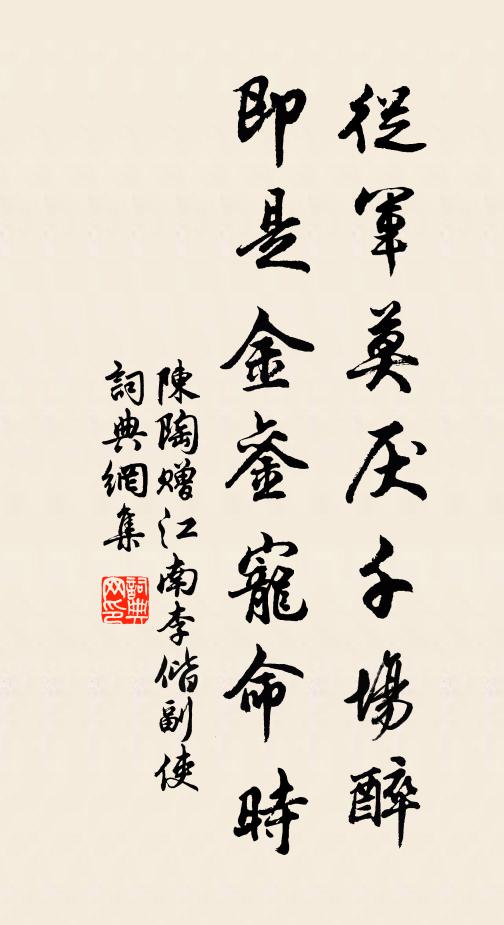 從軍莫厌千場醉
即是金銮寵命時
陳陶赠江南李偕副使
詞典網集
詞典网印